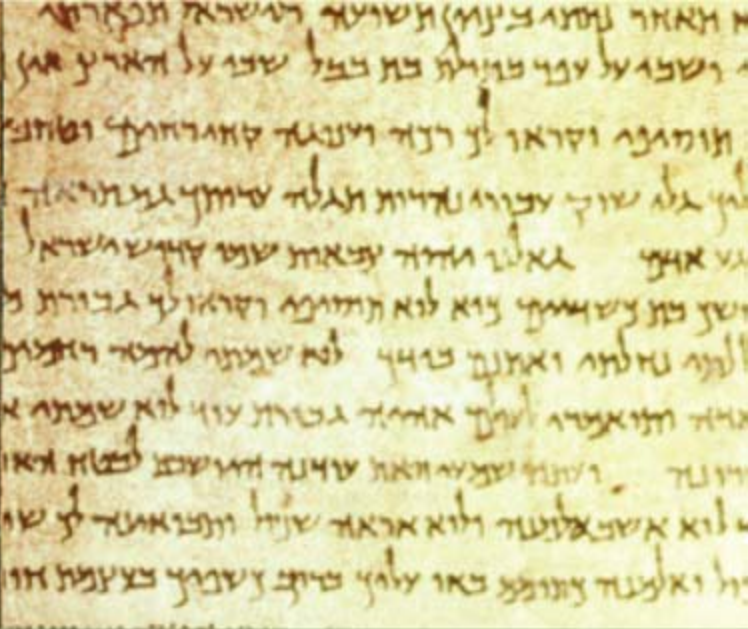 תאחר נתתי בציון תשועה ולישראל תפארתי
ושבי על עפר בתולת בת בבל שבי על הארץ אין
תוסיפי יקראו לך רכה וענוגה קחי וטחני
גלי שוקיך עבורי נהרות תגלה ערותך גם תראה
אדם גאלנו יהוה צבאות שמו קדוש ישראל
בת כשדיים כיא לוא תוסיפי יקראו לך גבורת
נחלתי ואתנם בידך לוא שמתי להמה רחמים
ותואמרי לעולם אהיה גבורת עוד לוא שמתי
ועתה שמעי זואת עדינה היושבת לבטח
לוא אשב אלמנה ולוא אראה שכול ותבואינה לך
ואלמנה כתומם באו עליך ברוב כשפיך בעצמת